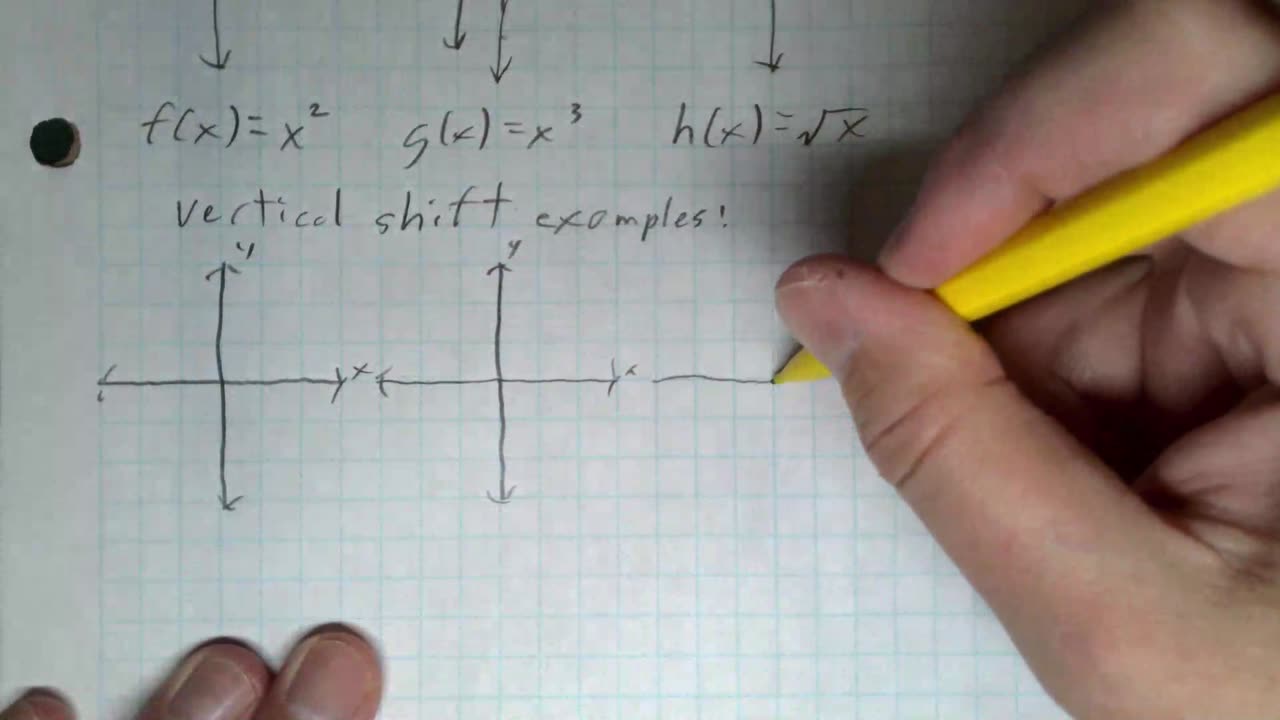 f(x)=x² g(x)=x³ h(x)=√x
vertical shift examples!
y y
x x